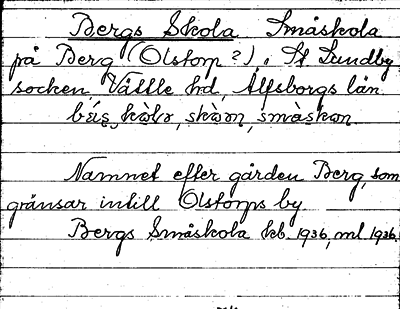 Bergs Skola Småskola
på Berg (Olstorp?). St Lundby
socken, Vättle hd, Älfsborgs län
skòla,
Namnet efter gården Berg, som
gränsar intill Olstorps by.
Bergs Småskola kb 1936, ml. 1936.